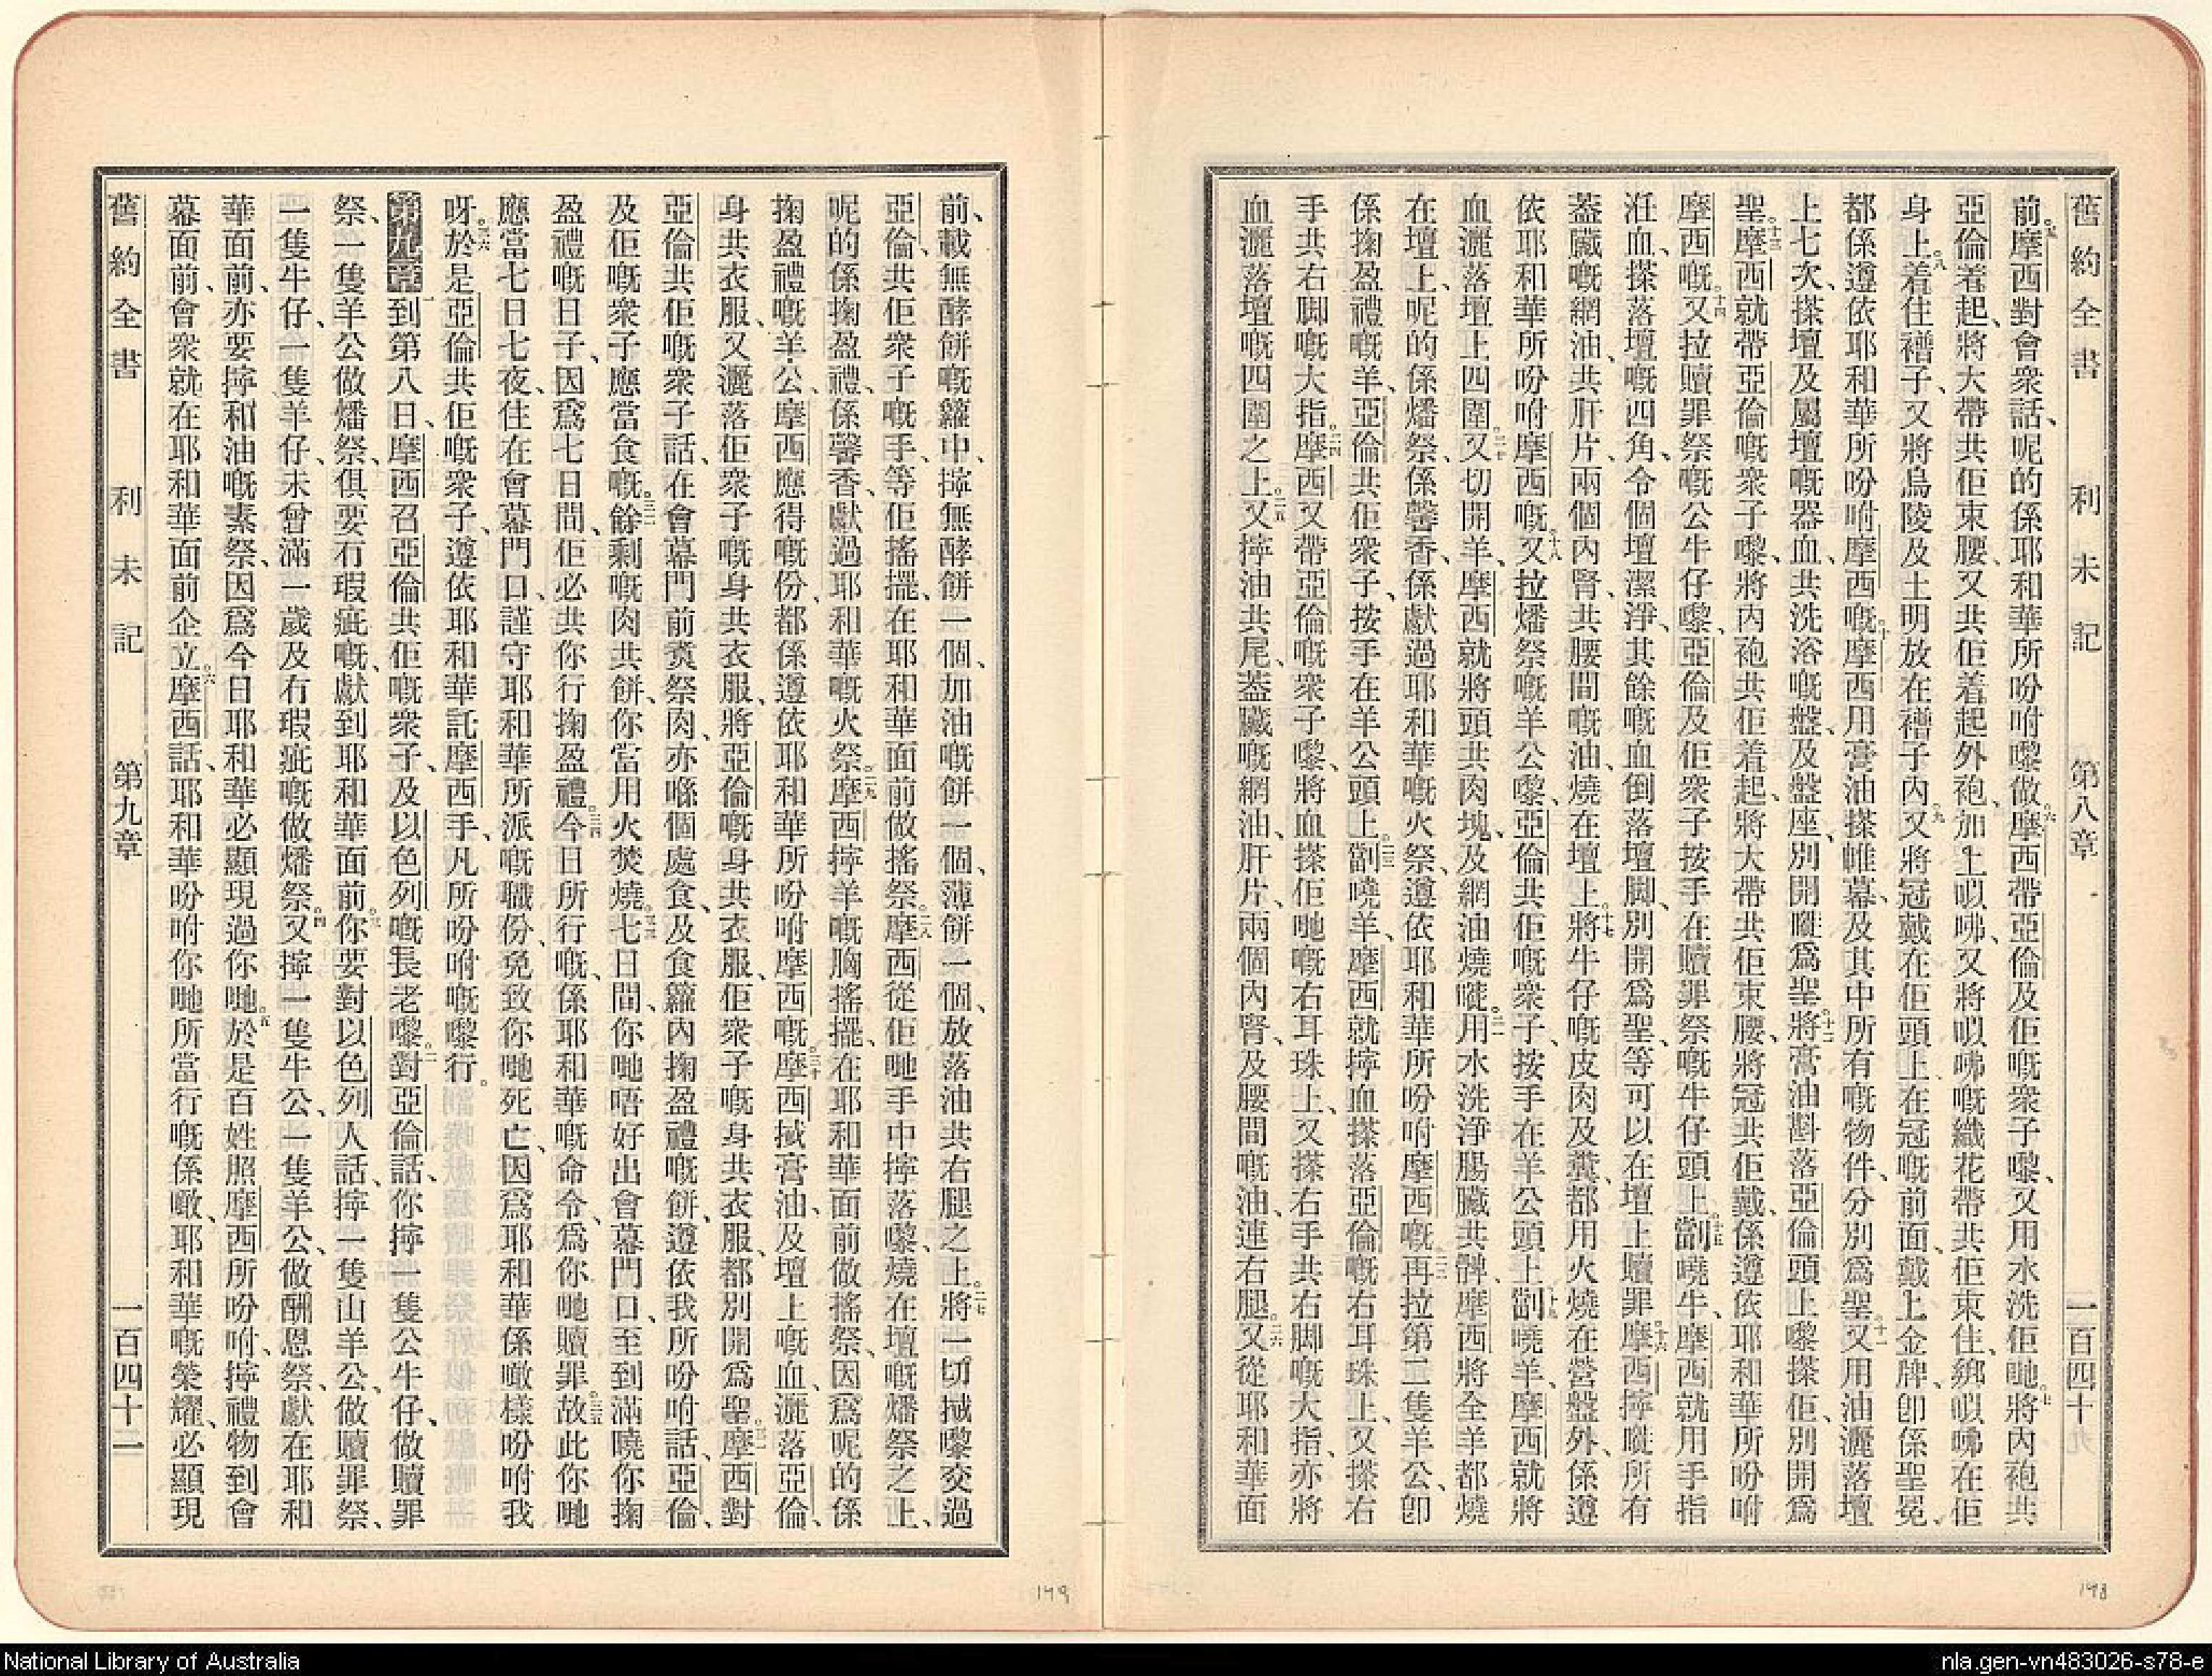 舊約全書　利未記　第八章　一百四十
前、摩西對會衆話、呢的係耶和華所吩咐嚟做。六摩西帶亞倫及佢嘅衆子嚟、又用水洗佢哋。七將內袍共
亞倫着起、將大帶共佢束腰、又共佢着起外袍、加上㕽咈、又將㕽咈嘅織花帶共佢束住、綁㕽咈在佢
身上。八着住禬子、又將烏陵及土明放在禬子內。九又將冠戴在佢頭上、在冠嘅前面、戴上金牌、卽係聖冕、
都係遵依耶和華所吩咐摩西嘅。十摩西用膏油搽帷幕、及其中所有嘅物件、分別爲聖。十一又用油灑落壇
上七次、搽壇及屬壇嘅器皿、共洗浴嘅盤、及盤座、別開嚡爲聖。十二將膏油斟落亞倫頭上嚟搽佢、別開爲
聖。十三摩西就帶亞倫嘅衆子嚟、將內袍共佢着起、將大帶共佢束腰、將冠共佢戴、係遵依耶和華所吩咐
摩西嘅。十四又拉贖罪祭嘅公牛仔嚟、亞倫及佢衆子按手在贖罪祭嘅牛仔頭上。十五劏嘵牛、摩西就用手指
𢫦血、搽落壇嘅四角、令個壇潔淨、其餘嘅血倒落壇脚、別開爲聖、等可以在壇上贖罪。十六摩西擰嗮所有
葢臟嘅網油、共肝片、兩個內腎、共腰間嘅油、燒在壇上。十七將牛仔嘅皮肉及糞、都用火燒在營盤外、係遵
依耶和華所吩咐摩西嘅。十八又拉燔祭嘅羊公嚟、亞倫共佢嘅衆子、按手在羊公頭上。十九劏嘵羊、摩西就將
血灑落壇上四圍。二十又切開羊、摩西就將頭共肉塊、及網油燒嗮。二一用水洗淨腸臟共髀、摩西將全羊都燒
在壇上、呢的係燔祭、係馨香、係獻過耶和華嘅火祭、遵依耶和華所吩咐摩西嘅。二二再拉第二隻羊公、卽
係掬盈禮嘅羊、亞倫共佢衆子、按手在羊公頭上。二三劏嘵羊、摩西就擰血搽落亞倫嘅右耳珠上、又搽右
手共右脚嘅大指。二四摩西又帶亞倫嘅衆子嚟、將血搽佢哋嘅右耳珠上、又搽右手共右脚嘅大指、亦將
血灑落壇嘅四圍之上。二五又擰油共尾、葢臟嘅網油、肝片、兩個內腎、及腰間嘅油、連右腿。二六又從耶和華面
前、載無酵餅嘅籮中、擰無酵餅一個、加油嘅餅一個、薄餅一個、放落油共右腿之上。二七將一切搣嚟交過
亞倫、共佢衆子嘅手、等佢搖擺、在耶和華面前做搖祭。二八摩西從佢哋手中擰落嚟、燒在壇嘅燔祭之上、
呢的係掬盈禮、係馨香、獻過耶和華嘅火祭。二九摩西擰羊嘅胸搖擺、在耶和華面前做搖祭、因爲呢的係
掬盈禮嘅羊公、摩西應得嘅份、都係遵依耶和華所吩咐摩西嘅。三十摩西搣膏油、及壇上嘅血、灑落亞倫、
身共衣服、又灑落佢衆子嘅身共衣服、將亞倫嘅身共衣服、佢衆子嘅身共衣服、都別開爲聖。三一摩西對
亞倫共佢嘅衆子話、在會幕門前煑祭肉、亦喺個處食、及食籮內掬盈禮嘅餅、遵依我所吩咐話、亞倫、
及佢嘅衆子應當食嘅。三二餘剩嘅肉共餅、你當用火焚燒。三三七日間、你哋唔好出會幕門口、至到滿嘵你掬
盈禮嘅日子、因爲七日間、佢必共你行掬盈禮。三四今日所行嘅、係耶和華嘅命令、爲你哋贖罪。三五故此你哋
應當七日七夜、住在會幕門口、謹守耶和華所派嘅職份、免致你哋死亡、因爲耶和華係噉樣吩咐我
呀。三六於是亞倫共佢嘅衆子、遵依耶和華託摩西手、凡所吩咐嘅嚟行。
第九章　一到第八日、摩西召亞倫共佢嘅衆子、及以色列嘅長老嚟。二對亞倫話、你擰一隻公牛仔、做贖罪
祭、一隻羊公做燔祭、俱要冇瑕疵嘅、獻到耶和華面前。三你要對以色列人話、擰一隻山羊公、做贖罪祭、
一隻牛仔、一隻羊仔、未曾滿一歲及冇瑕疵嘅做燔祭。四又擰一隻牛公、一隻羊公、做酬恩祭、獻在耶和
華面前、亦要擰和油嘅素祭、因爲今日耶和華必顯現過你哋。五於是百姓照摩西所吩咐、擰禮物到會
幕面前、會衆就在耶和華面前企立。六摩西話、耶和華吩咐你哋所當行嘅係噉、耶和華嘅榮耀、必顯現
舊約全書　利未記　第九章　一百四十一
149
148
National Library of Australia
nla.gen-vn483026-s78-e